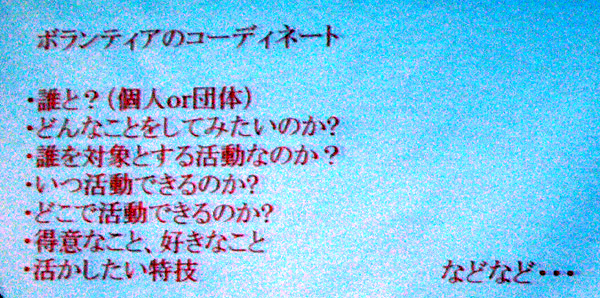 ボランティアのコーディネート
・誰と？（個人or団体）
・どんなことをしてみたいのか?
・誰を対象とする活動なのか？
・いつ活動できるのか?
・どこで活動できるのか?
・得意なこと、好きなこと
・活かしたい特技 などなど・・・